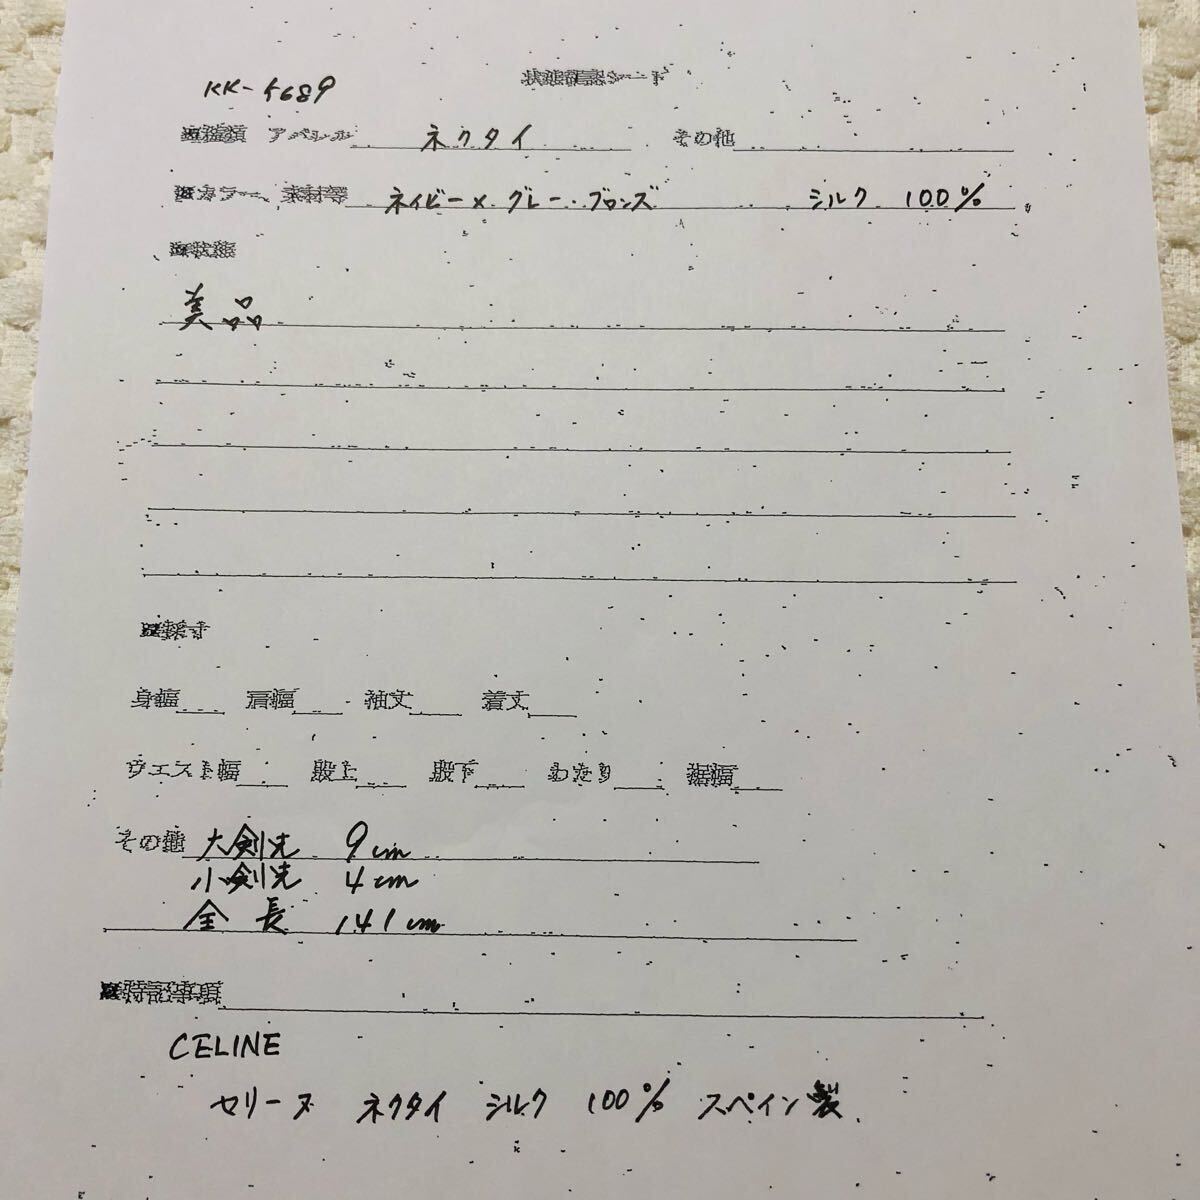 状態確認シート
KK-5689
種類 アパレル ネクタイ その他
カラー、素材等 ネイビー×グレー・ブロンズ シルク 100%
状態
美品
採寸
身幅 肩幅 袖丈 着丈
ウエスト幅 股上 股下 わたり 裾幅
その他 大剣先 9cm
小剣先 4cm
全長 141cm
特記事項
CELINE
セリーヌ ネクタイ シルク 100% スペイン製